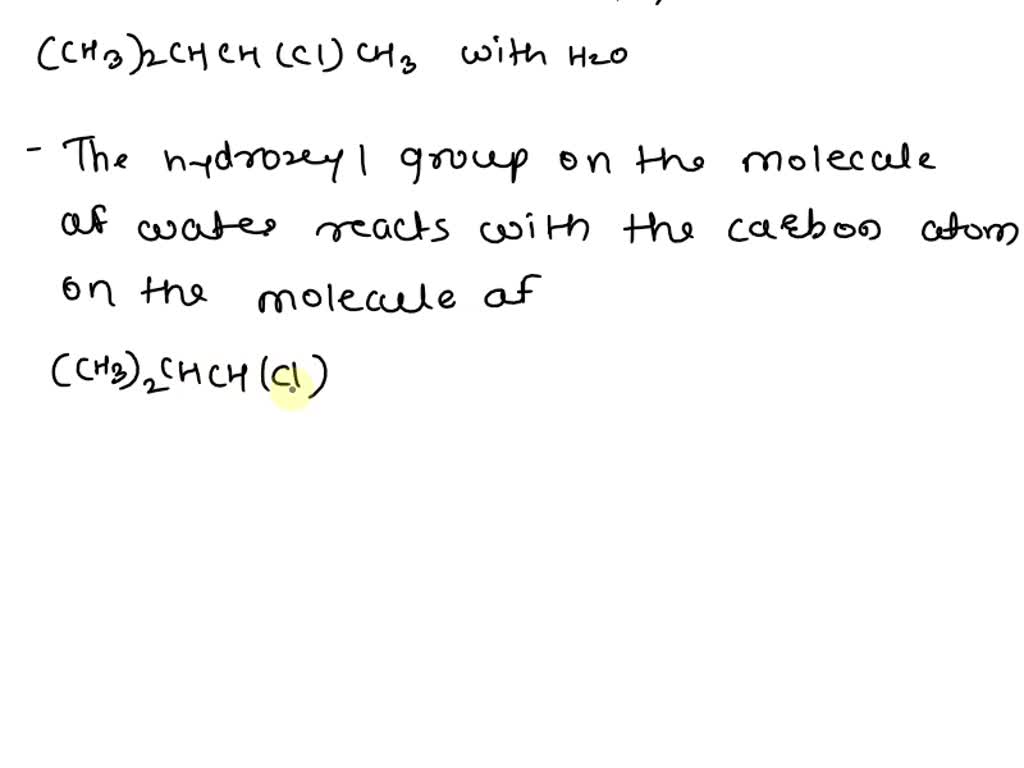 (CH3)2CHCH(Cl)CH3 with H2O
- The hydroxeyl group on the molecule
of water reacts with the carbon atom
on the molecule of
(CH3)2CHCH(Cl)